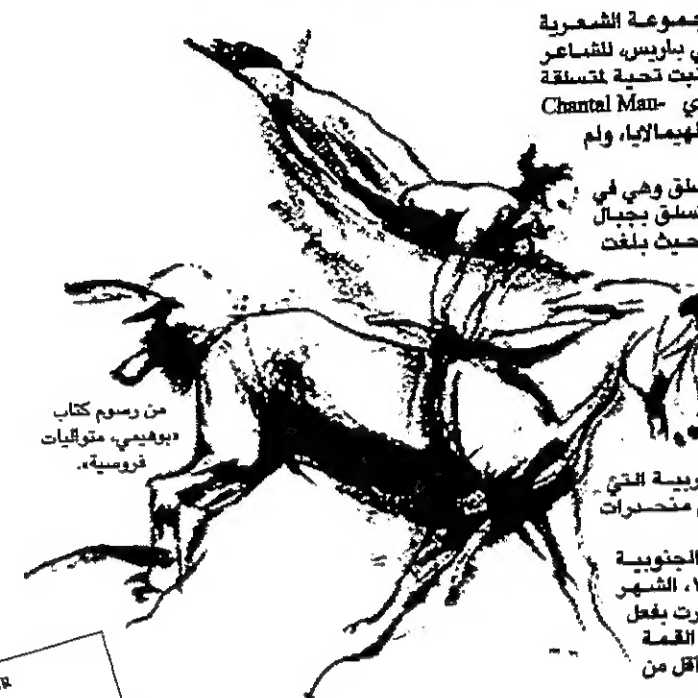 جموعة الشعرية
ي باريس، للشاعر
تبت تحية لمتسلقة
ي Chantal Mau-
لهيمالايا، ولم
سلق وهي في
تسلق بجبال
حيث بلغت
من رسوم كتاب
«بوهيمي، متواليات
فروسية».
وربية التي
منحدرات
الجنوبية
الشهر
رت بفعل
القمة
اقل من